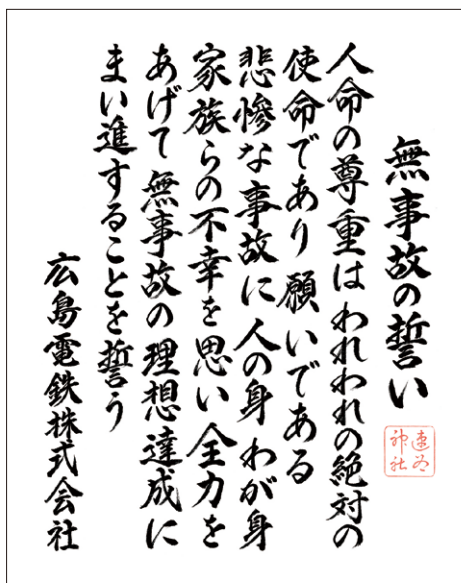 無事故の誓い
速谷
神社
人命の尊重はわれわれの絶対の
使命であり願いである
悲惨な事故に人の身わが身
家族らの不幸を思い全力を
あげて無事故の理想達成に
まい進することを誓う
広島電鉄株式会社